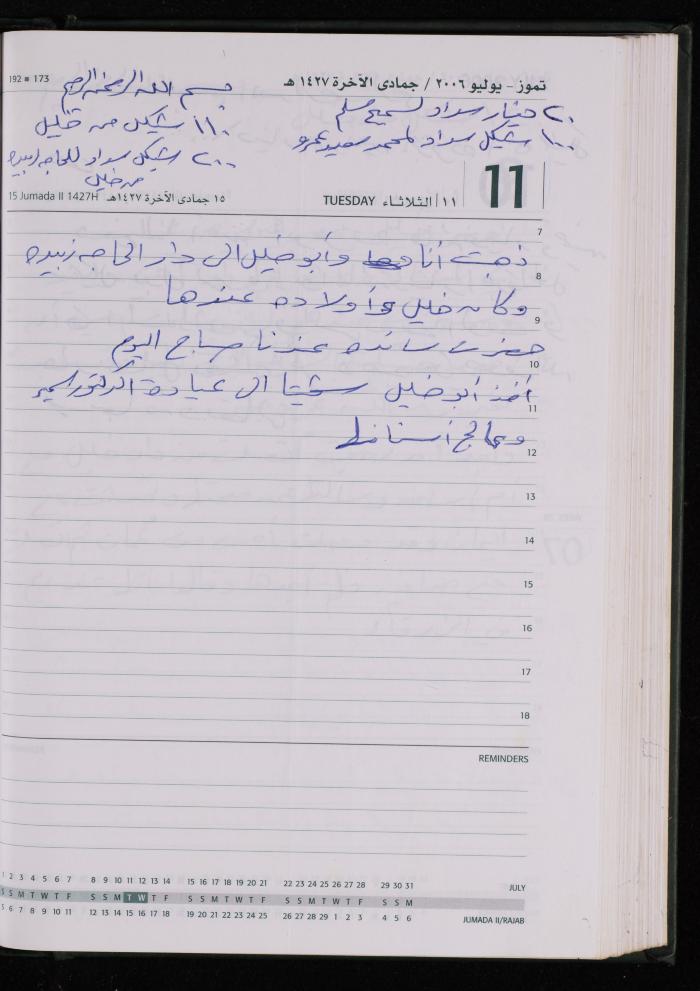 192 ■ 173
تموز - يوليو ٢٠٠٦ / جمادى الآخرة ١٤٢٧ هـ
بسم الله الرحمن الرحيم
٢٠ دينار سداد لسميح مسلم
١١٠ شيكل من خليل
١٠٠ شيكل سداد لمحمد سعيد عمرو
٢٠٠ شيكل سداد للحاجه زبيده
من خليل
11
TUESDAY الثلاثاء | ١١
١٥ جمادى الآخرة ١٤٢٧هـ 15 Jumada II 1427H
7
ذهبت أنا وأبو خليل الى دار الحاجه زبيده
8
وكان خليل وأولاده عندها
9
حضرت سائده عندنا صباح اليوم
10
أخذ أبو خليل الى عيادة الدكتور سمير
11
وعالج أسنانه
12
13
14
15
16
17
18
REMINDERS
1 2 3 4 5 6 7 8 9 10 11 12 13 14 15 16 17 18 19 20 21 22 23 24 25 26 27 28 29 30 31 JULY
S S M T W T F S S M T W T F S S M T W T F S S M T W T F S S M
5 6 7 8 9 10 11 12 13 14 15 16 17 18 19 20 21 22 23 24 25 26 27 28 29 1 2 3 4 5 6 JUMADA II/RAJAB